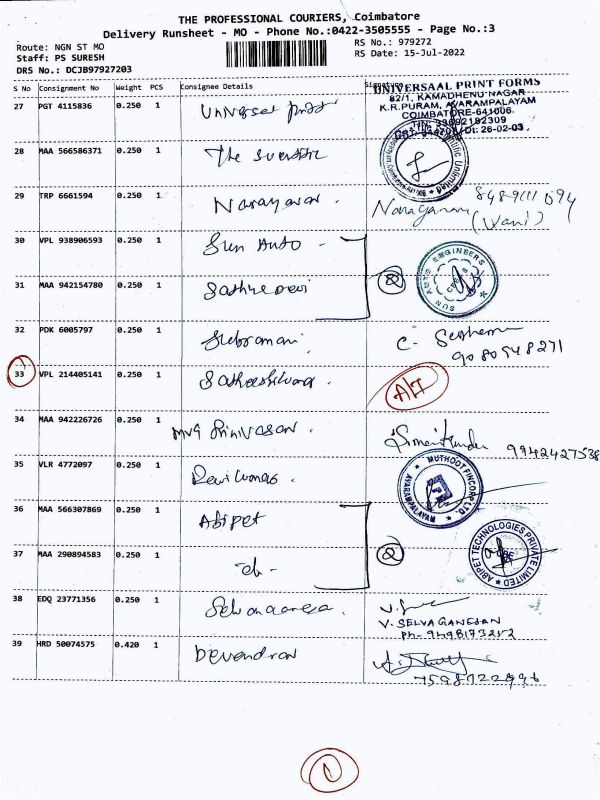 THE PROFESSIONAL COURIERS, Coimbatore
Delivery Runsheet - MO - Phone No.:0422-3505555 - Page No.:3
Route: NGN ST MO
Staff: PS SURESH
DRS No.: DCJB97927203
RS No.: 979272
RS Date: 15-Jul-2022
S No Consignment No Weight PCS Consignee Details Signature
UNIVERSAAL PRINT FORMS
82/1, KAMADHENU NAGAR
K.R.PURAM, AVARAMPALAYAM
COIMBATORE-641006.
27 PGT 4115836 0.250 1 Universal print
Dt: 26-02-03
28 MAA 566586371 0.250 1 The
29 TRP 6661594 0.250 1 Narayanan.
Narayanan 8489111094
(Vani)
30 VPL 938906593 0.250 1 Sun Auto -
31 MAA 942154780 0.250 1 Sathya Devi
2
SUN AUTO ENGINEERS
32 PDK 6005797 0.250 1 Subramani
9080548271
33 VPL 214405141 0.250 1
34 MAA 942226726 0.250 1 MVG Srinivasan.
9942427538
35 VLR 4772097 0.250 1
MUTHOOT FINCORP LTD.
AVARAMPALAYAM
36 MAA 566307869 0.250 1 Abipet
37 MAA 290894583 0.250 1 -do-
2
ABIPET TECHNOLOGIES PRIVATE LIMITED
38 EDQ 23771356 0.250 1
V. SELVA GANESAN
Ph- 9498173252
39 HRD 50074575 0.420 1 Devendran
7598722996
1